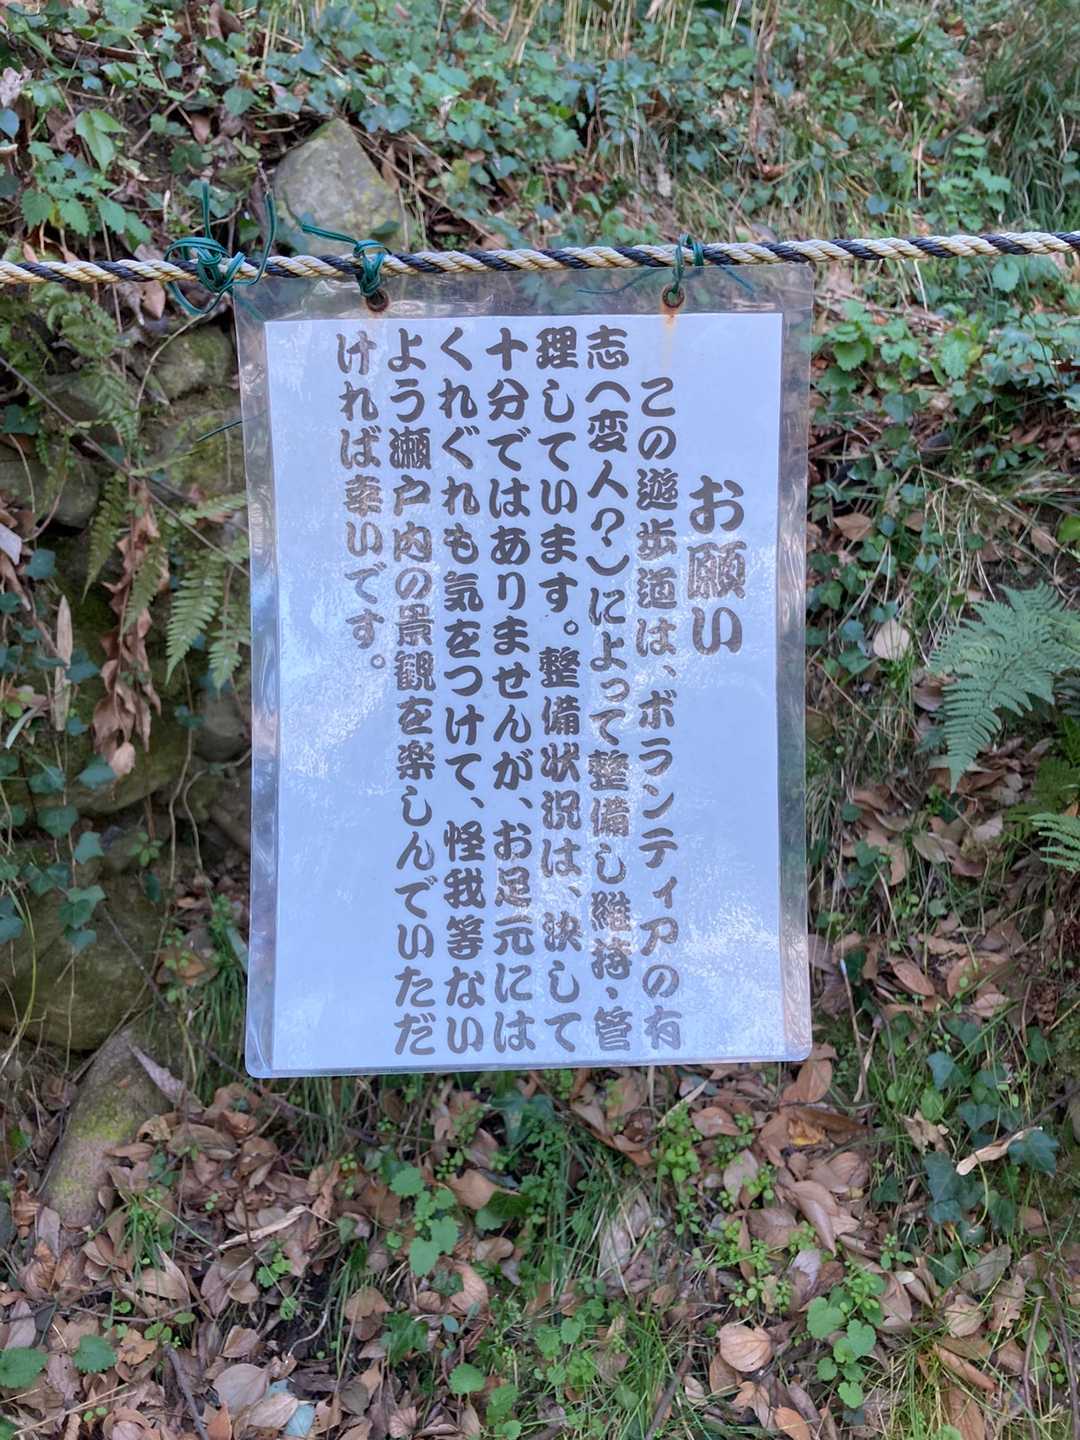 お願い
この遊歩道は、ボランティアの有
志(変人?)によって整備し維持、管
理しています。整備状況は、決して
十分ではありませんが、お足元には
くれぐれも気をつけて、怪我等ない
よう瀬戸内の景観を楽しんでいただ
ければ幸いです。